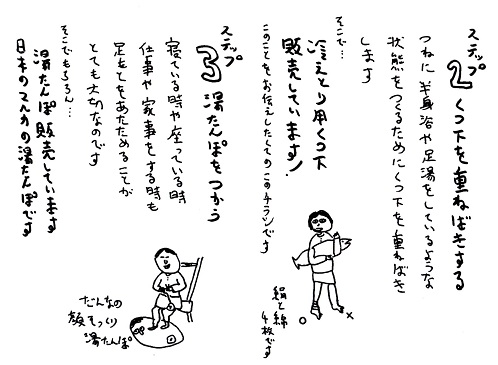 ステップ2 くつ下を重ねばきする
つねに半身浴や足湯をしているような
状態をつくるためにくつ下を重ねばき
します
そこで…
冷えとり用くつ下
販売しています!
このことをお伝えしたくてのこのチラシです
絹と綿
4枚です
○ ×
ステップ3 湯たんぽをつかう
寝ている時や座っている時
仕事や家事をする時も
足もとをあたためることが
とても大切なのです
そこでもちろん…
湯たんぽ販売しています
日本のマルカの湯たんぽです
だんなの
顔そっくり
湯たんぽ